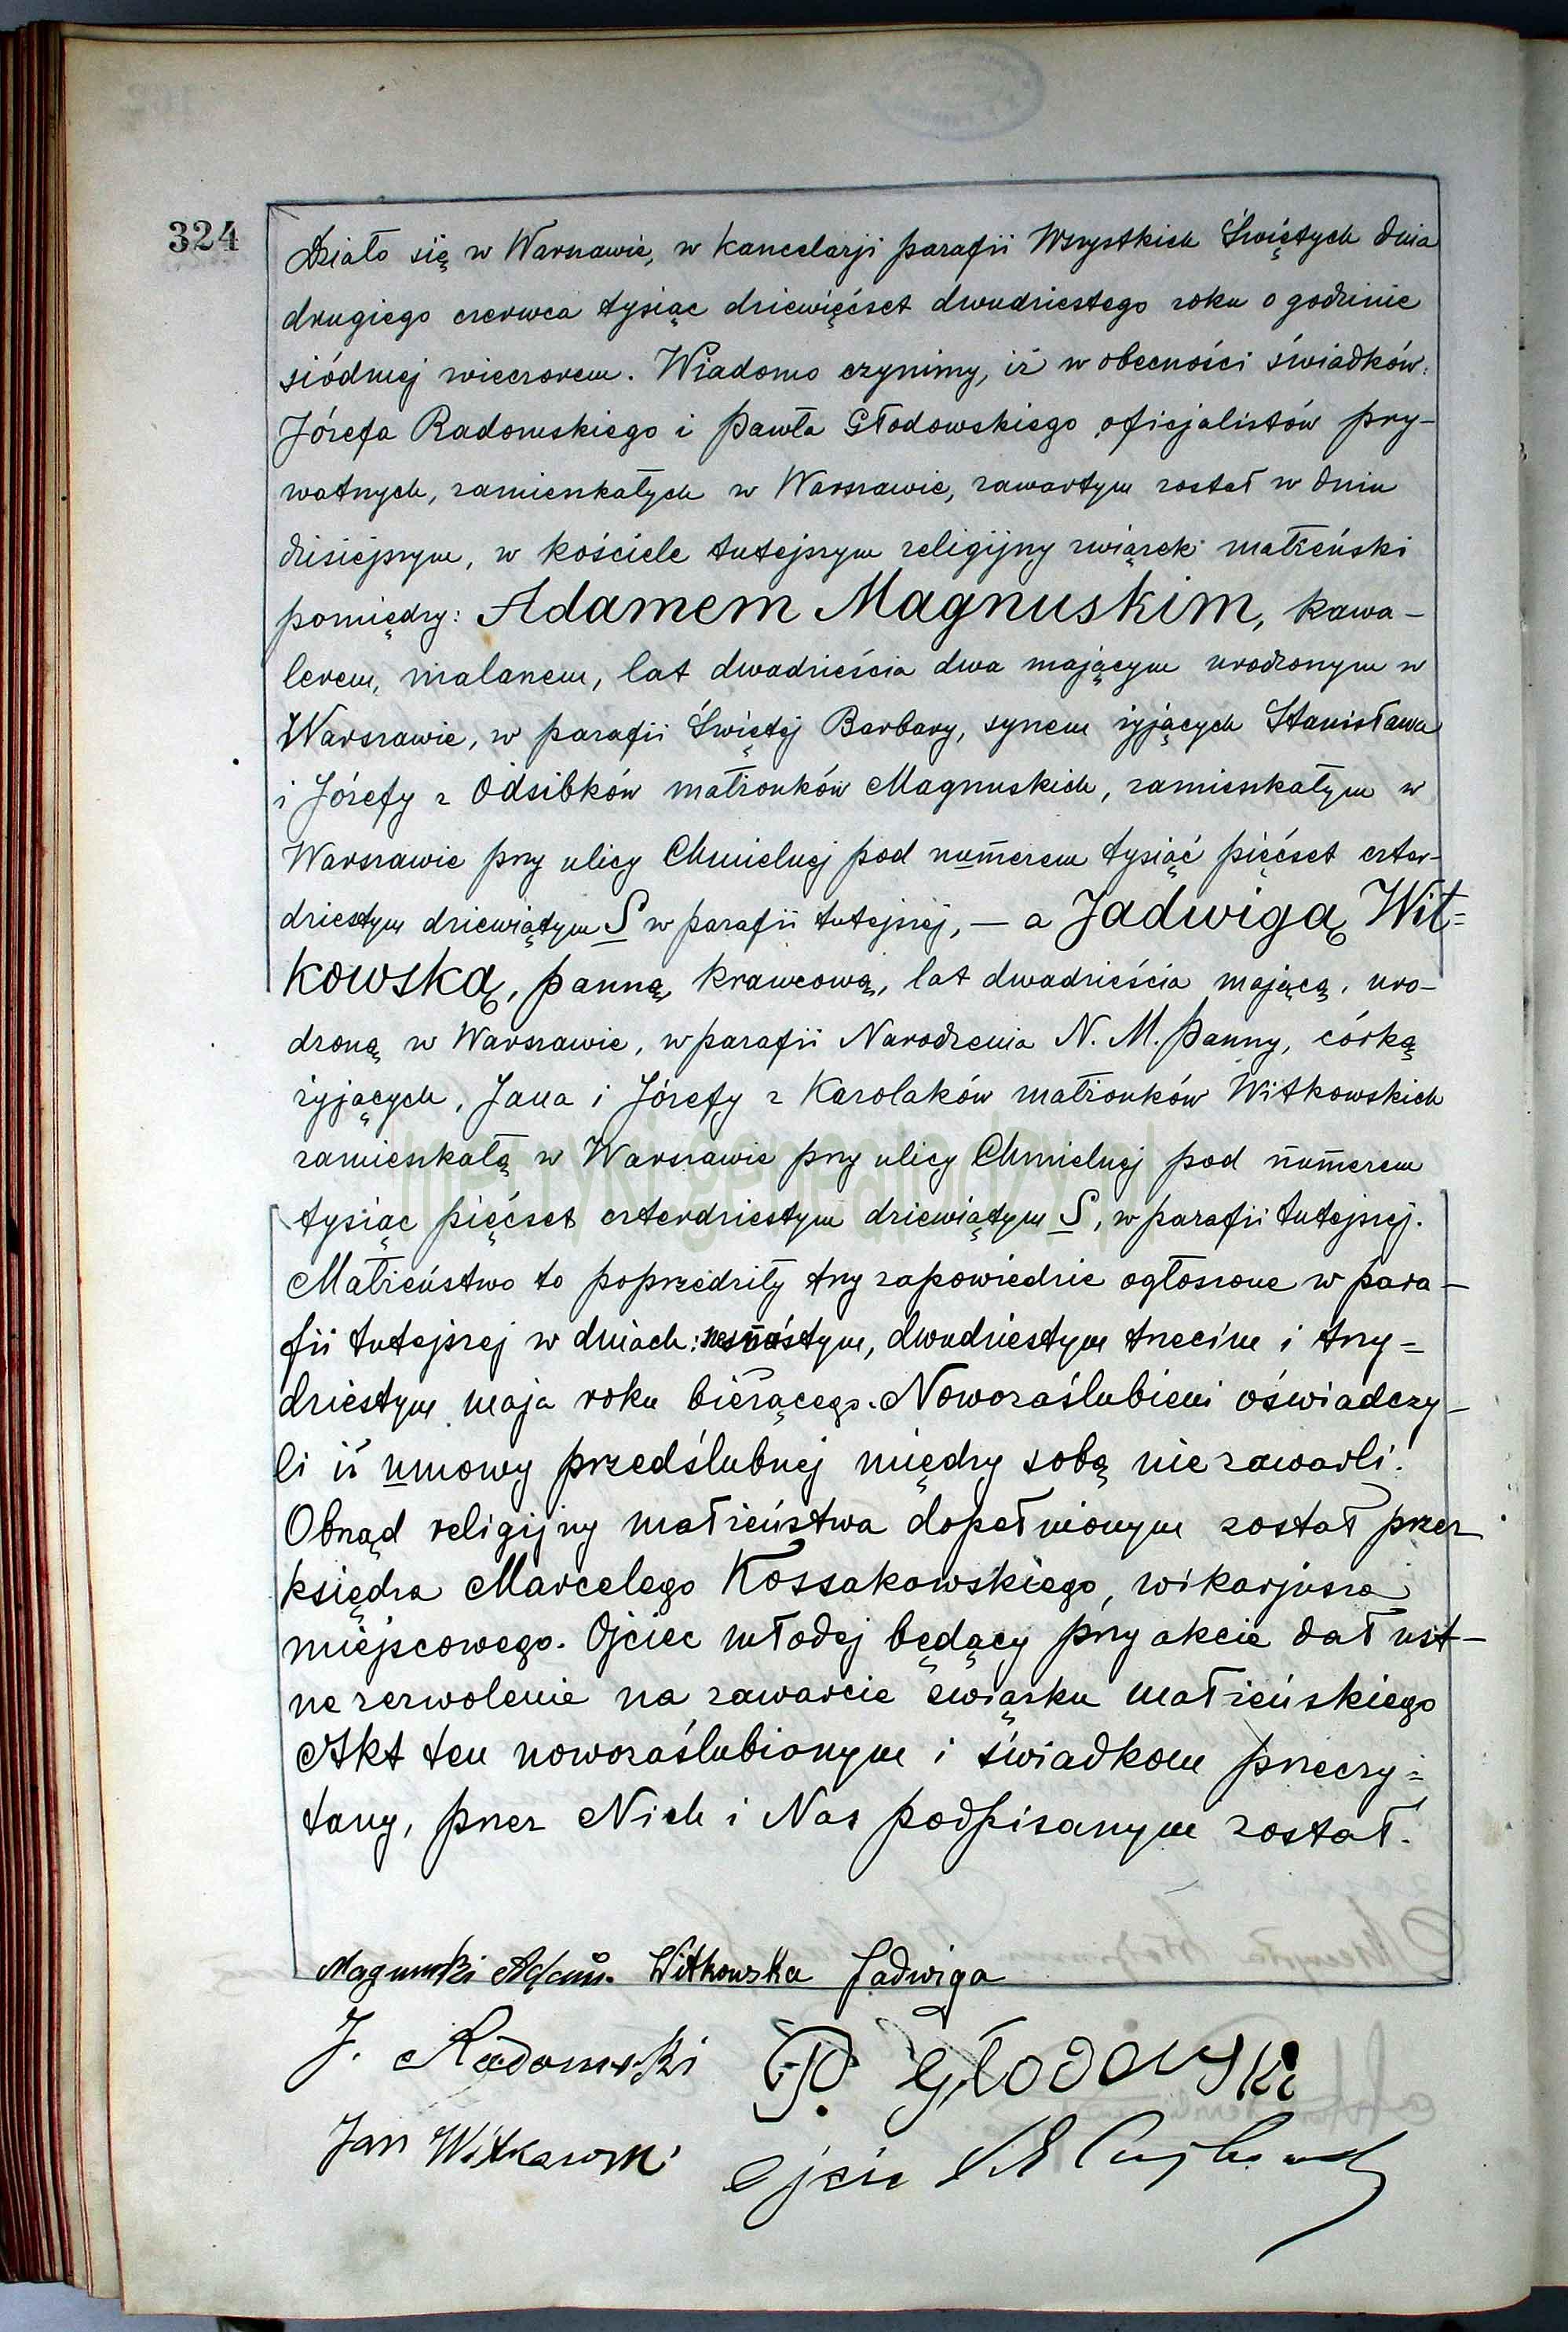 324
Działo się w Warszawie, w kancelarji parafii Wszystkich Świętych dnia
drugiego czerwca tysiąc dziewięćset dwudziestego roku o godzinie
siódmej wieczorem. Wiadomo czynimy, iż w obecności świadków:
Józefa Radomskiego i Pawła Głodowskiego oficjalistów pry-
watnych, zamieszkałych w Warszawie, zawartym został w dniu
dzisiejszym, w kościele tutejszym religijny związek małżeński
pomiędzy: Adamem Magnuskim, kawa-
lerem, malarzem, lat dwadzieścia dwa mającym urodzonym w
Warszawie, w parafii Świętej Barbary, synem żyjących Stanisława
i Józefy z Odsibków małżonków Magnuskich, zamieszkałym w
Warszawie przy ulicy Chmielnej pod numerem tysiąć pięćset czter-
dziestym dziewiątym S w parafii tutejszej, — a Jadwigą Wit=
kowską, panną, krawcową, lat dwadzieścia mającą, uro-
dzoną w Warszawie, w parafii Narodzenia N. M. Panny, córką
żyjących, Jana i Józefy z Karolaków małżonków Witkowskich
zamieszkałą w Warszawie przy ulicy Chmielnej pod numerem
tysiąc pięćset czterdziestym dziewiątym S, w parafii tutejszej.
Małżeństwo to poprzedziły trzy zapowiedzie ogłoszone w para-
fii tutejszej w dniach: szesnastym, dwudziestym trzecim i trzy=
dziestym maja roku bieżącego. Nowozaślubieni oświadczy-
li iż umowy przedślubnej między sobą nie zawarli.
Obrząd religijny małżeństwa dopełnionym został przez
księdza Marcelego Kossakowskiego, wikarjusza
miejscowego. Ojciec młodej będący przy akcie dał ust-
ne zezwolenie na zawarcie związku małżeńskiego
Akt ten nowozaślubionym i świadkom przeczy=
tany, przez Nich i Nas podpisanym został.
Magnuski Adam. Witkowska Jadwiga
J. Radomski P. Głodowski
Jan Witkowski
metryki.genealodzy.pl